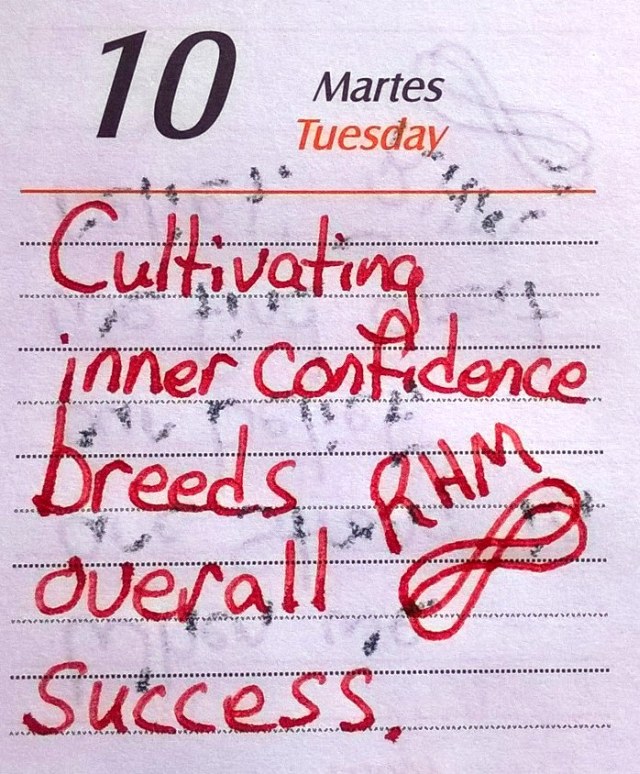 10 Martes
Tuesday
Cultivating
inner confidence
breeds
RHM
overall
success.